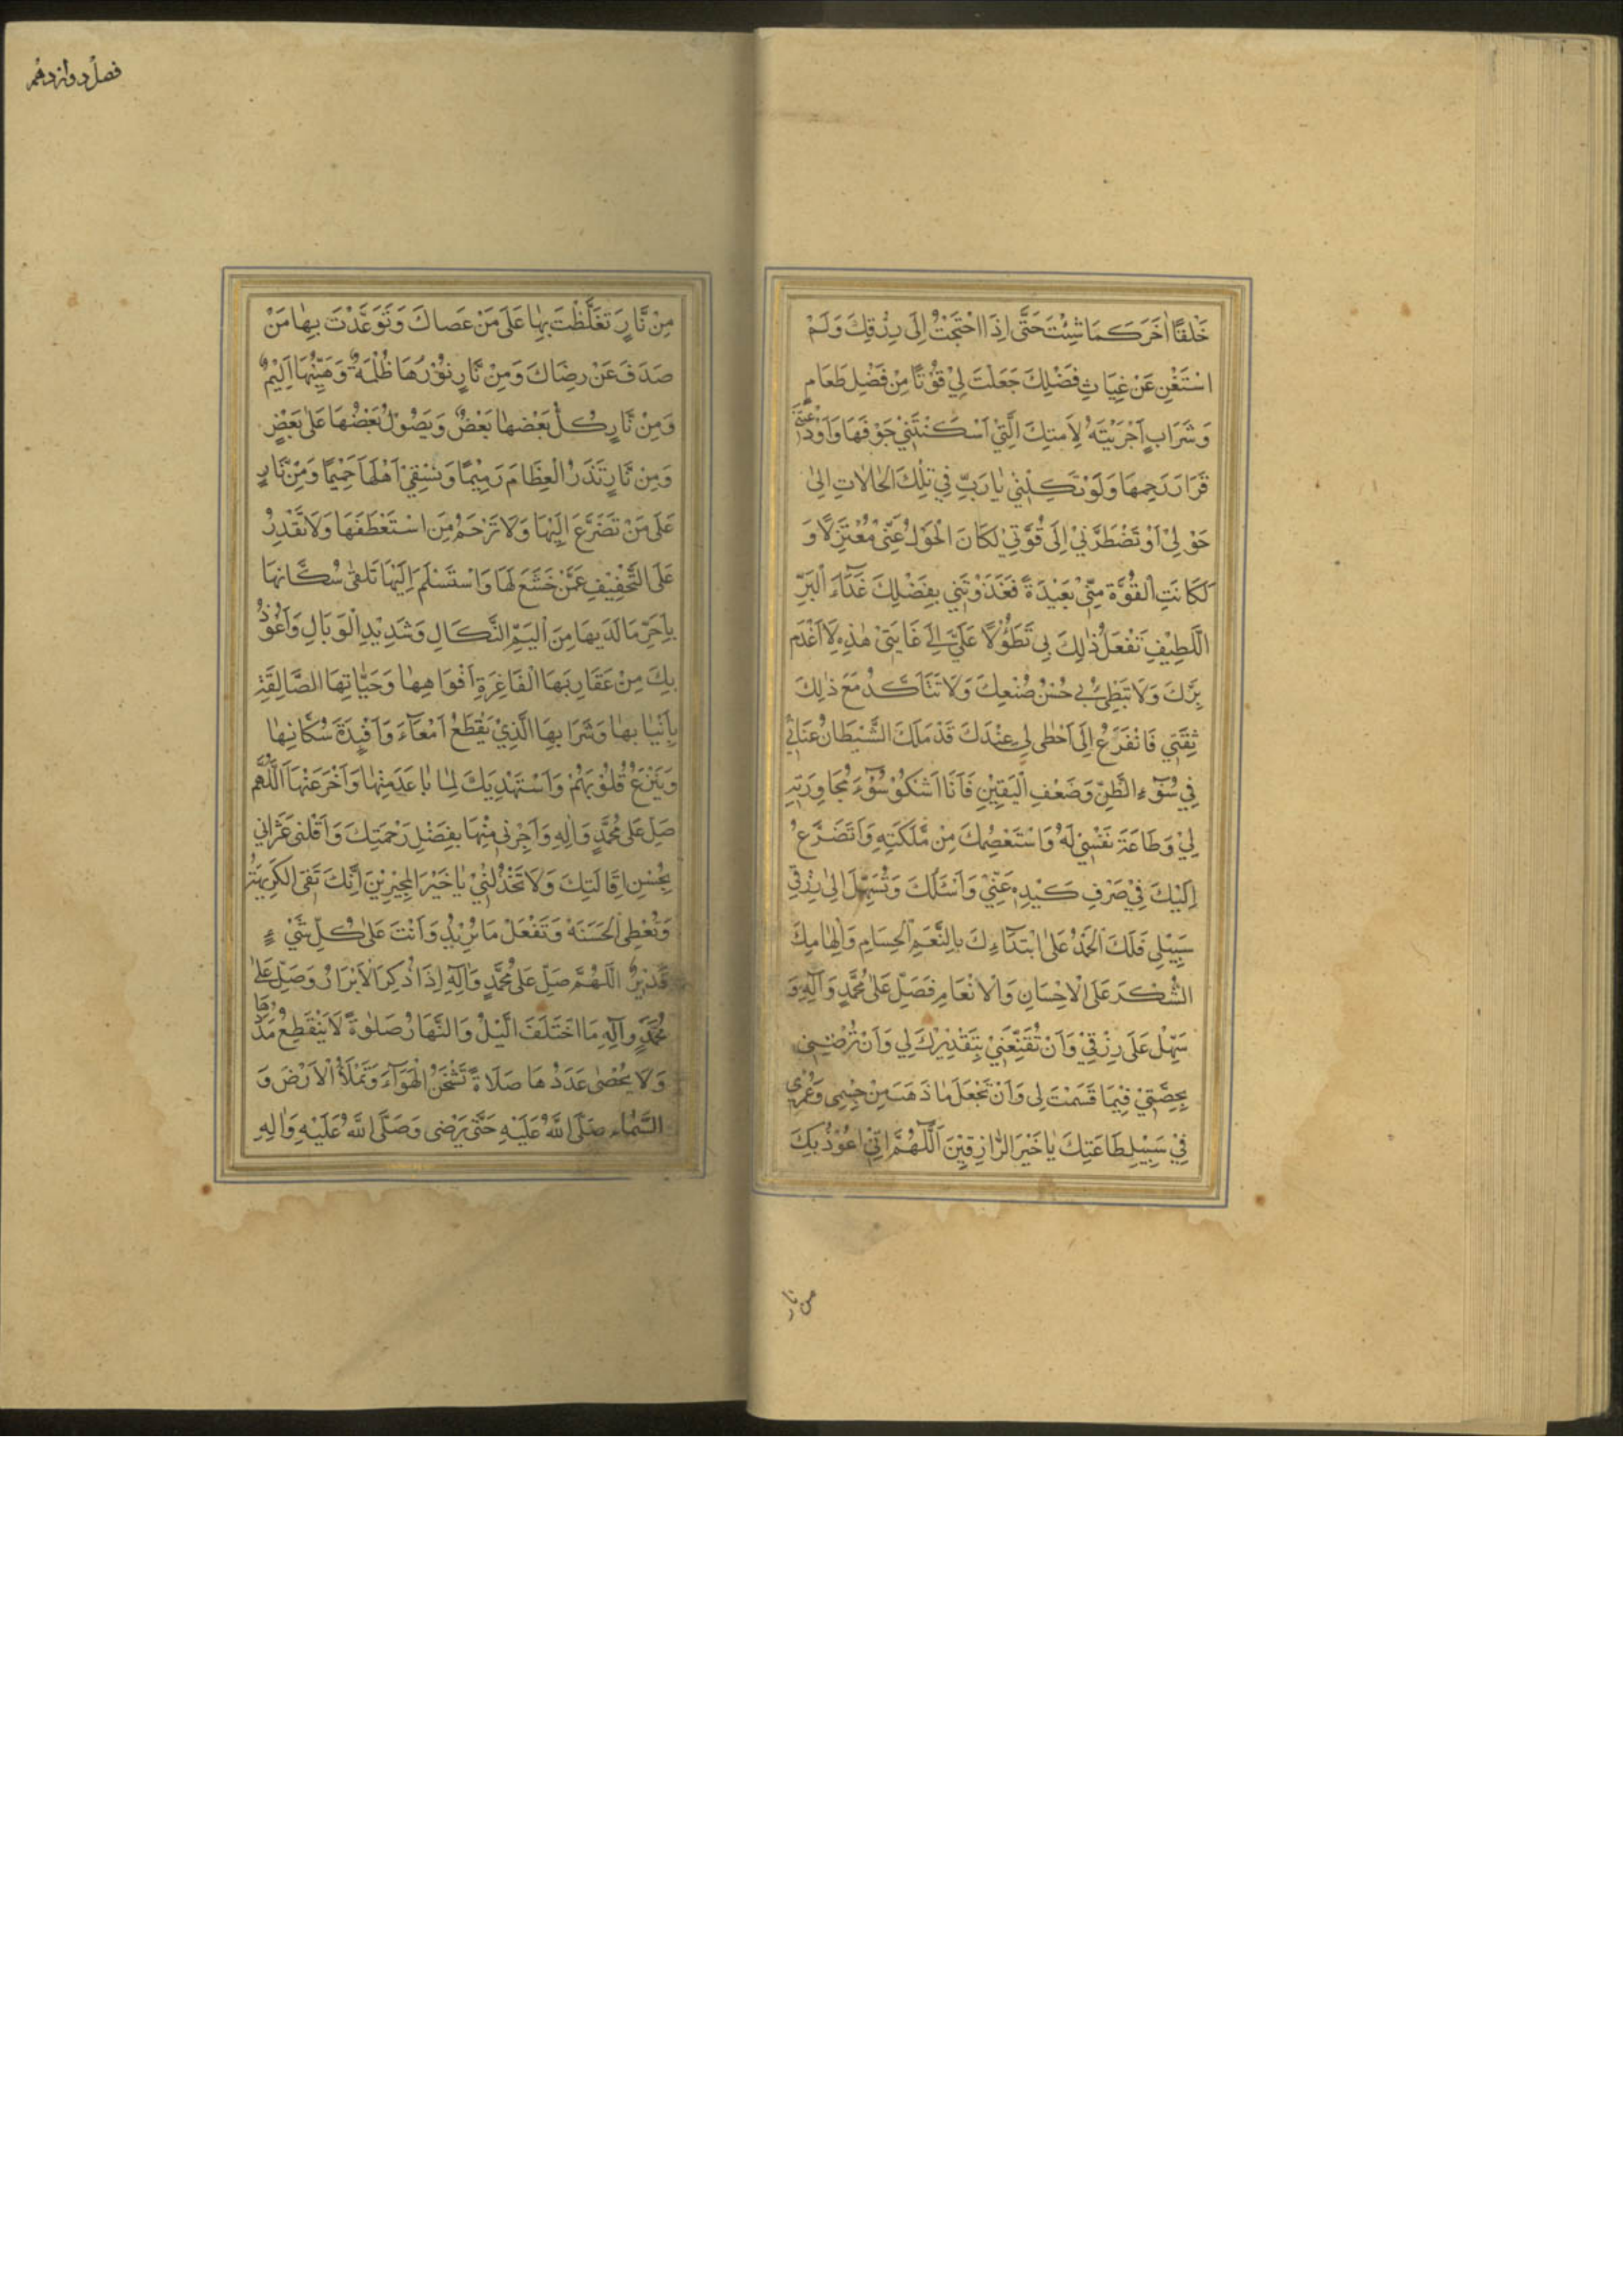 خَلْقًا اٰخَرَ كَمَا شِئْتَ حَتّٰى اِذَا احْتَجْتُ اِلَى رِزْقِكَ وَلَمْ
اسْتَغْنِ عَنْ غِيَاثِ فَضْلِكَ جَعَلْتَ لِيْ قُوْتًا مِنْ فَضْلِ طَعَامٍ
وَشَرَابٍ اَجْرَيْتَهُ لِاَمَتِكَ الَّتِيْ اَسْكَنْتَنِيْ جَوْفَهَا وَاَوْدَعْتَنِيْ
قَرَارَ رَحِمِهَا وَلَوْ تَكِلْنِيْ يٰا رَبِّ فِيْ تِلْكَ الْحٰالٰاتِ اِلىٰ
حَوْلِيْ اَوْ تَضْطَرُّنِيْ اِلَى قُوَّتِيْ لَكَانَ الْحَوْلُ عَنِّيْ مُعْتَزِلًا وَ
لَكَانَتِ الْقُوَّةُ مِنِّيْ بَعِيْدَةً فَغَذَوْتَنِي بِفَضْلِكَ غَذَآءَ الْبَرِّ
اللَّطِيْفِ تَفْعَلُ ذٰلِكَ بِي تَطَوُّلًا عَلَيَّ اِلَى غَايَتِيْ هٰذِهِ لَا اَعْدَمُ
بِرَّكَ وَلَا تُبْطِئُ بِي حُسْنُ صُنْعِكَ وَلَا تَتَاَكَّدُ مَعَ ذٰلِكَ
ثِقَتِي فَاَتَفَرَّغَ اِلَى اَحْظٰى لِي عِنْدَكَ قَدْ مَلَكَ الشَّيْطَانُ عِنَانِيْ
فِي سُوْءِ الظَّنِّ وَضَعْفِ الْيَقِيْنِ فَاَنَا اَشْكُوْ سُوْءَ مُجَاوَرَتِهِ
لِيْ وَطَاعَةَ نَفْسِيْ لَهُ وَاسْتَعْصِمُكَ مِنْ مَلَكَتِهِ وَاَتَضَرَّعُ
اِلَيْكَ فِيْ صَرْفِ كَيْدِهِ عَنِّيْ وَاَسْئَلُكَ وَتُسَهِّلَ اِلىٰ رِزْقِي
سَبِيْلِي فَلَكَ الْحَمْدُ عَلىٰ ابْتِدَآءِكَ بِالنِّعَمِ الْحِسَامِ وَاِلْهٰامِكَ
الشُّكْرَ عَلَى الْاِحْسَانِ وَالْاِنْعَامِ فَصَلِّ عَلىٰ مُحَمَّدٍ وَآلِهِ وَ
سَهِّلْ عَلَى رِزْقِيْ وَاَنْ تُقَنِّعَنِيْ بِتَقْدِيْرِكَ لِي وَاَنْ تُرْضِيَنِي
بِحِصَّتِيْ فِيْمَا قَسَمْتَ لِي وَاَنْ تَجْعَلَ مٰا ذَهَبَ مِنْ جِسْمِي وَعُمْرِي
فِيْ سَبِيْلِ طَاعَتِكَ يٰا خَيْرَ الرّٰازِقِيْنَ اَللّٰهُمَّ اِنِّيْ اَعُوْذُ بِكَ
من نار
فصل دوازدهم
مِنْ نَّارٍ تَغَلَّظْتَ بِهٰا عَلَى مَنْ عَصاكَ وَتَوَعَّدْتَ بِهٰا مَنْ
صَدَفَ عَنْ رِضَاكَ وَمِنْ نَّارٍ نُوْرُهَا ظُلْمَةٌ وَهَيِّنُهَا اَلِيْمٌ
وَمِنْ نَّارٍ كُلُّ بَعْضَهٰا بَعْضٌ وَيَصُوْلُ بَعْضُهَا عَلىٰ بَعْضٍ
وَمِنْ نَّارٍ تَذَرُ الْعِظَامَ رَمِيْمًا وَتَسْقِيْ اَهْلَهَا حَمِيْمًا وَمِنْ نَّارٍ
عَلَى مَنْ تَضَرَّعَ اِلَيْهَا وَلَا تَرْحَمُ مَنِ اسْتَعْطَفَهَا وَلَا تَقْدِرُ
عَلَى التَّخْفِيْفِ عَمَّنْ خَشَعَ لَهَا وَاسْتَسْلَمَ اِلَيْهَا تَلْقىٰ سُكَّانَهَا
بِاَحَرِّ مَا لَدَيْهَا مِنْ اَلِيْمِ النَّكَالِ وَشَدِيْدِ الْوَبَالِ وَاَعُوْذُ
بِكَ مِنْ عَقَارِبِهَا الْفَاغِرَةِ اَفْوَاهِهٰا وَحَيّٰاتِهَا الصَّالِقَةِ
بِاَنْيٰابِهٰا وَشَرَابِهَا الَّذِيْ يُقَطِّعُ اَمْعَآءَ وَاَفْئِدَةَ سُكَّانِهٰا
وَيَنْزِعُ قُلُوْبَهُمْ وَاَسْتَهْدِيْكَ لِمٰا بٰاعَدَ مِنْهٰا وَاَخَّرَ عَنْهَا اَللّٰهُمَّ
صَلِّ عَلَى مُحَمَّدٍ وَاٰلِهِ وَاَجِرْنِي مِنْهَا بِفَضْلِ رَحْمَتِكَ وَاَقِلْنِي عَثَرٰاتِي
بِحُسْنِ اِقَالَتِكَ وَلَا تَخْذُلْنِيْ يٰا خَيْرَ الْمُجِيْرِيْنَ اِنَّكَ تَقِى الْكَرِيْهَةَ
وَتُعْطِى الْحَسَنَةَ وَتَفْعَلُ مَا تُرِيْدُ وَاَنْتَ عَلىٰ كُلِّ شَيْءٍ
قَدِيْرٌ اَللّٰهُمَّ صَلِّ عَلَى مُحَمَّدٍ وَاٰلِهِ اِذَا ذُكِرَ الْاَبْرَارُ وَصَلِّ عَلىٰ
مُحَمَّدٍ وَآلِهِ مَا اخْتَلَفَ الَّيْلُ وَالنَّهَارُ صَلٰوةً لَا يَنْقَطِعُ مَدَدُهَا
وَلَا يُحْصٰى عَدَدُهَا صَلَاةً تَشْحَنُ الْهَوَآءَ وَتَمْلَأُ الْاَرْضَ وَ
السَّمٰاءَ صَلَّى اللّٰهُ عَلَيْهِ حَتّٰى يَرْضٰى وَصَلَّى اللّٰهُ عَلَيْهِ وَاٰلِهِ